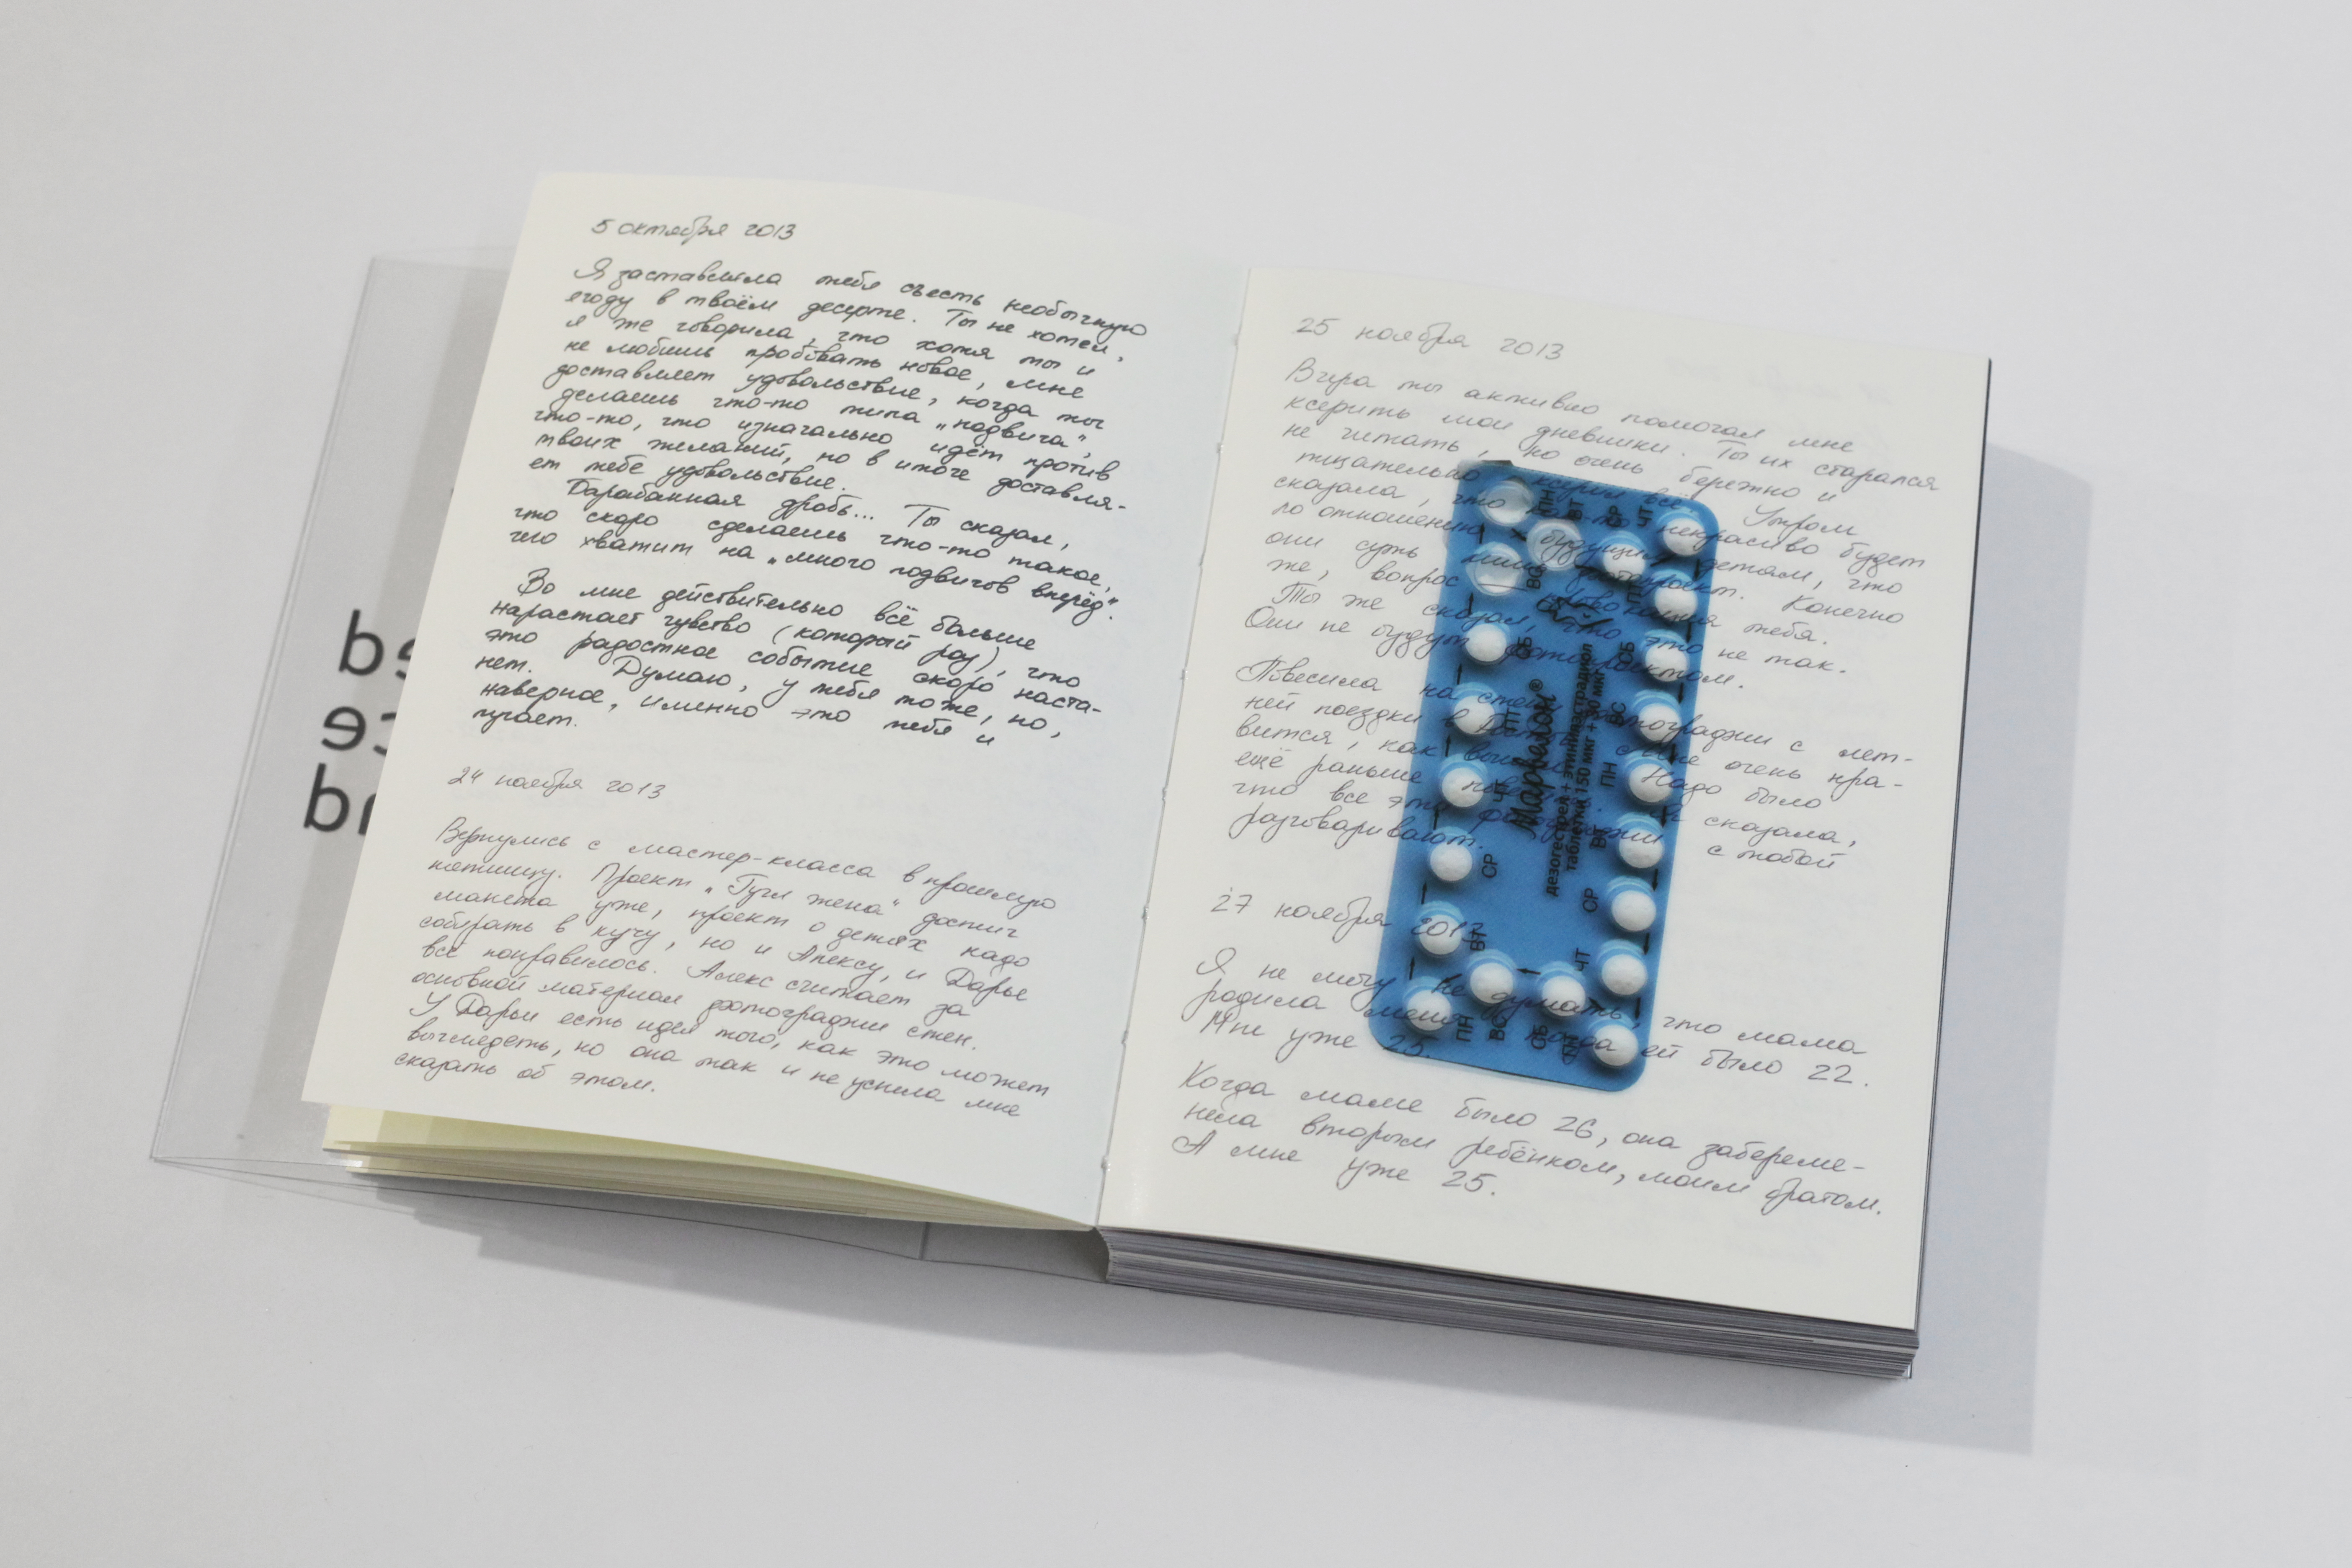 5 октября 2013
Я заставляла тебя съесть необычную
ягоду в твоём десерте. Ты не хотел,
я же говорила, что хотя ты и
не любишь пробовать новое, мне
доставляет удовольствие, когда ты
делаешь что-то типа „подвига“,
что-то, что изначально идёт против
твоих желаний, но в итоге доставля-
ет тебе удовольствие.
Барабанная дробь... Ты сказал,
что скоро сделаешь что-то такое,
чего хватит на „много подвигов вперёд“.
Во мне действительно всё больше
нарастает чувство (который раз), что
это радостное событие скоро наста-
нет. Думаю, у тебя тоже, но,
наверное, именно это тебя и
пугает.
24 ноября 2013
Вернулись с мастер-класса в прошлую
пятницу. Проект „Гугл жена“ достиг
макета уже, проект о детях надо
собирать в кучу, но и Алексу, и Дарье
всё понравилось. Алекс считает за
основной материал фотографии стен.
У Дарьи есть идея того, как это может
выглядеть, но она так и не успела мне
сказать об этом.
25 ноября 2013
Вчера ты активно помогал мне
ксерить мои дневники. Ты их старался
не читать, но очень бережно и
тщательно ксерил всё. Утром
сказала, что как-то некрасиво будет
по отношению к будущим детям, что
они суть лишь фотопроект. Конечно
же, вопрос провокация тебя.
Ты же сказал, что это не так.
Они не будут фотопроектом.
Повесила на стену фотографии с лет-
ней поездки в Мне очень нра-
вится, как Надо было
ещё раньше повесить. Я сказала,
что все эти фотографии с тобой
разговаривают.
27 ноября 2013
Я не могу не думать, что мама
родила меня, когда ей было 22.
Мне уже 25.
Когда маме было 26, она забереме-
нела вторым ребёнком, моим братом.
А мне уже 25.
Марвелон®
дезогестрел + этинилэстрадиол
таблетки 150 мкг + 30 мкг
ПН
ВТ
СР
ЧТ
ПТ
СБ
ВС
ПН
ВТ
СР
ЧТ
СБ
ВС
ПН
ВТ
СР
ЧТ
ПТ
СБ
ВС